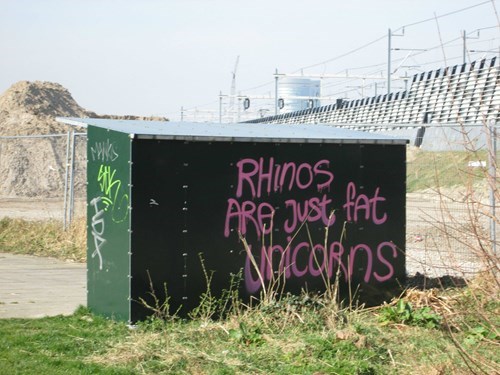 RHinos
ARe just fat
UNICORNS